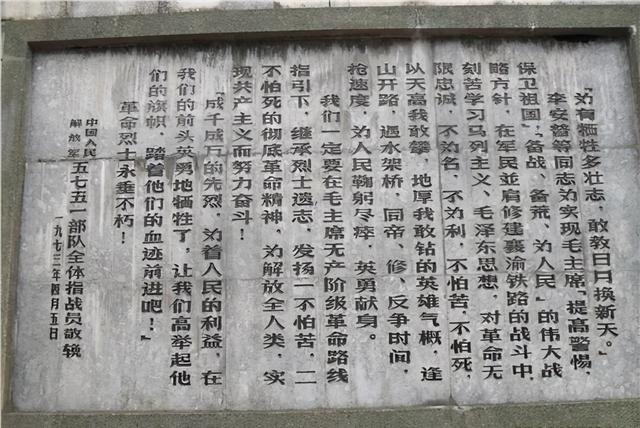 “为有牺牲多壮志 敢教日月换新天。”
李安等同志为实现毛主席“提高警惕,
保卫祖国”,“备战、备荒、为人民”的伟大战
略方针,在军民並肩修建襄渝铁路的战斗中,
刻苦学习马列主义、毛泽东思想,对革命无
限忠诚,不为名、不为利,不怕苦、不怕死,
以天高我敢攀,地厚我敢钻的英雄气概,逢
山开路,遇水架桥,同帝、修、反争时间,
抢速度 为人民鞠躬尽瘁,英勇献身。
我们一定要在毛主席无产阶级革命路线
指引下,继承烈士遗志,发扬一不怕苦,二
不怕死的彻底革命精神,为解放全人类,实
现共产主义而努力奋斗!
“成千成万的先烈,为着人民的利益,在
我们的前头英勇地牺牲了,让我们高举起他
们的旗帜,踏着他们的血迹前进吧!”
革命烈士永垂不朽!
中国人民
解放军五七五一部队全体指战员敬挽
一九七三年四月五日